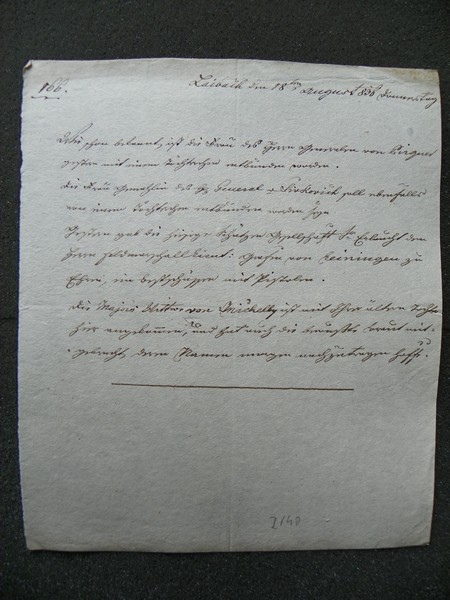 166.
Laibach den 18ten August 836 Donnerstag
schon bekannt, ist die Frau des Herrn Generalen von
gestern mit einem Töchterchen entbunden worden.
die Frau Gemahlin des H. General v. soll ebenfalls
von einem Töchterchen entbunden worden seyn
Gestern gab die hiesige Schützen Gesellschaft Sr Erlaucht dem
Herrn Feldmarschallieut: Grafen von Leiningen zu
Ehren, ein Bestschießen mit Pistolen.
Die Majors Wittwe von ist mit Ihrer ältern Tochter
hier angekommen, und hat auch die Braut mit-
gebracht, deren Namen morgen nachzutragen hoffe.
2148